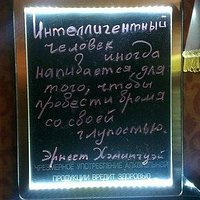 Интеллигентный
человек
иногда
напивается, для
того, чтобы
провести время
со своей
глупостью.
Эрнест Хэмингуэй
ЧРЕЗМЕРНОЕ УПОТРЕБЛЕНИЕ АЛКОГОЛЬНОЙ
ПРОДУКЦИИ ВРЕДИТ ЗДОРОВЬЮ